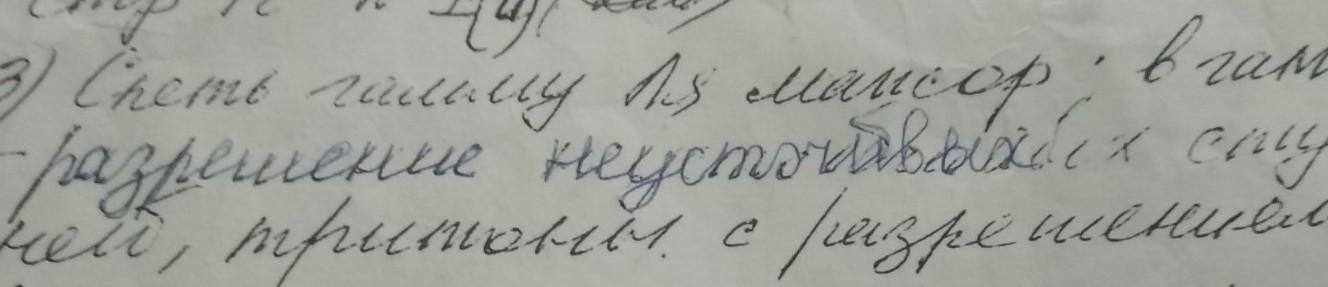 3) Спеть гамму Ля мажор; в гам
- разрешение неустойчивых сту
ней, тритоны с разрешением